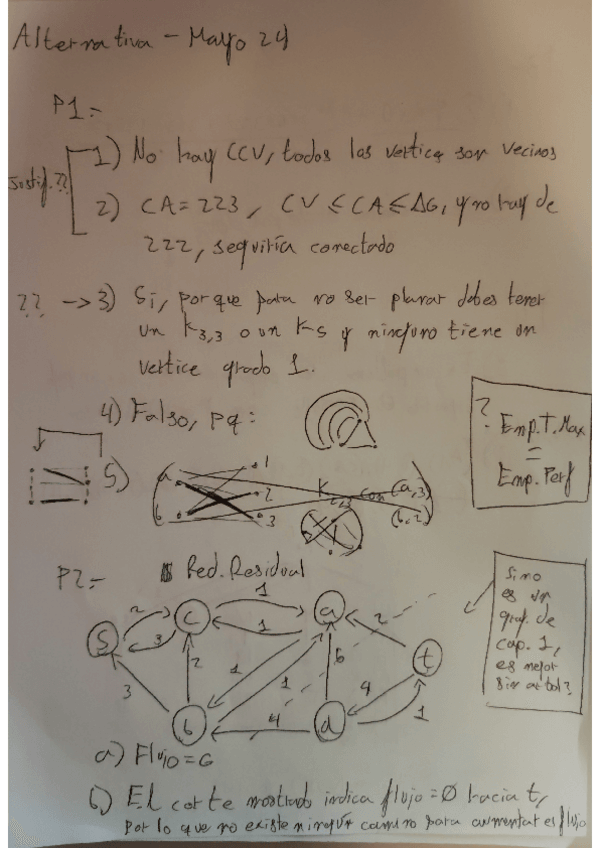 Alternativa - Mayo 24
P1:-
Justif.??
1) No hay CCV, todos los vertices son vecinos
2) CA = 223, CV ≤ CA ≤ ΔG, y no hay de
222, seguiría conectado
?? → 3) Si, porque para no ser planar debes tener
un K3,3 o un K5 y ninguno tiene un
vertice grado 1.
4) Falso, pq:
?
Emp.T.Max
=
Emp.Perf
5)
a
b
1
2
3
con (a,3)
(b,2)
P2:-
Red.Residual
S
c
a
b
d
t
2
3
1
1
2
3
1
1
6
2
4
4
1
Si no
es un
graf. de
cap. 1,
es mejor
sin arbol?
a) Flujo = 6
b) El corte mostrado indica flujo = Ø hacia t,
por lo que no existe ningún camino para aumentar el flujo